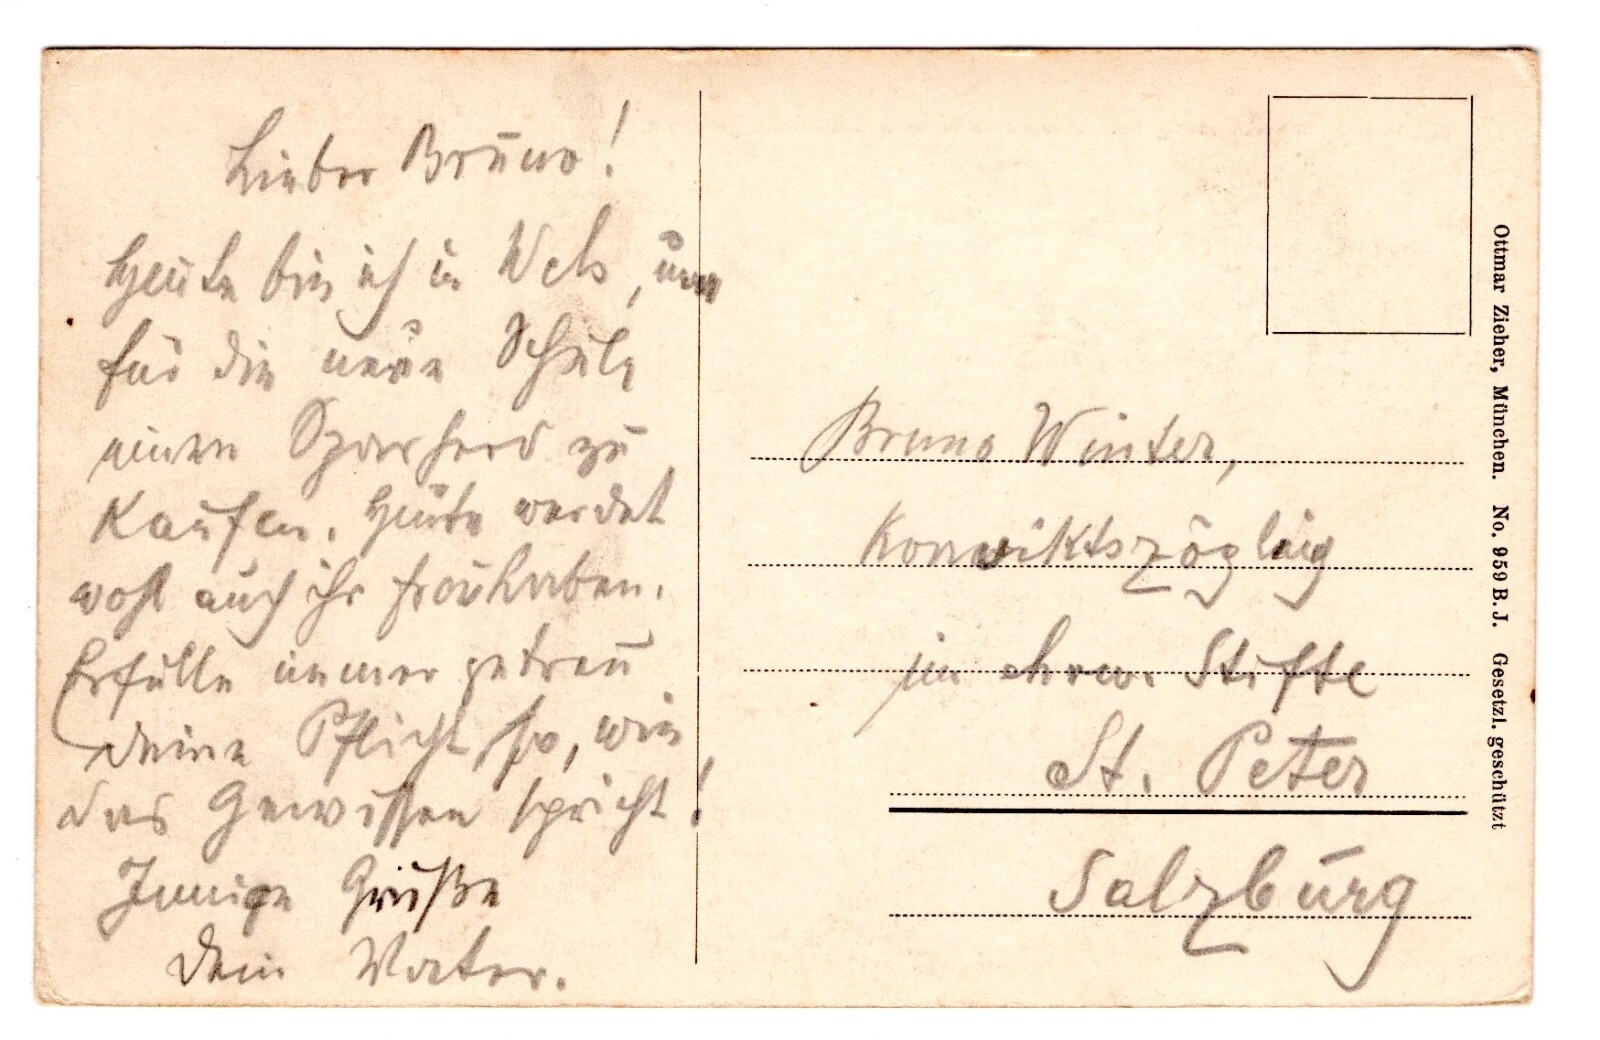 Lieber Bruno!
Heute bin ich in Wels, um
für die neue Schule
einen Sparherd zu
kaufen. Heute werdet
wohl auch ihr freihaben.
Erfülle immer getreu
deine Pflicht so, wie
das Gewissen spricht!
Innige Grüße
Dein Vater.
Bruno Winter,
Konviktszögling
im ehrw. Stifte
St. Peter
Salzburg
Ottmar Zieher, München. No. 959 B. J. Gesetzl. geschützt